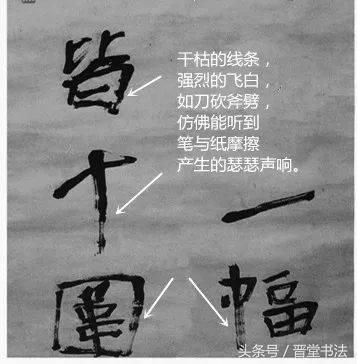 干枯的线条，
强烈的飞白，
如刀砍斧劈，
仿佛能听到
笔与纸摩擦
产生的瑟瑟声响。
一幅
皆十围
头条号／晋堂书法